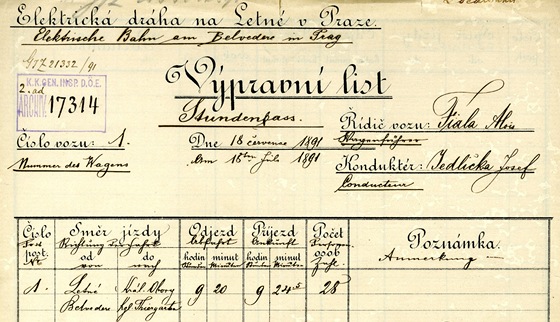 Elektrická dráha na Letné v Praze.
Elektrische Bahn am Belvedere in Prag
GJZ 21332/91
K.K. GEN. INSP. D.Ö.E.
2. ad
ARCHIV 17314
Výpravní list
Stundenpass.
Číslo vozu: 1.
Nummer des Wagens
Dne 18 července 1891
Am 18ten Juli 1891
Řídič vozu: Fiala Alois
Wagenführer
Konduktér: Jedlička Josef
Conducteur
Číslo Směr jízdy Odjezd Příjezd Počet Poznámka.
Post Richtung der Fahrt Abfahrt Ankunft Personen Anmerkung
post. od do hodin minut hodin minut osob
Nr. von nach Stunden Minuten Stunden Minuten Zahl
1. Letné Král. Obory 9 20 9 24 5 28
Belvedere kgl Thiergarten